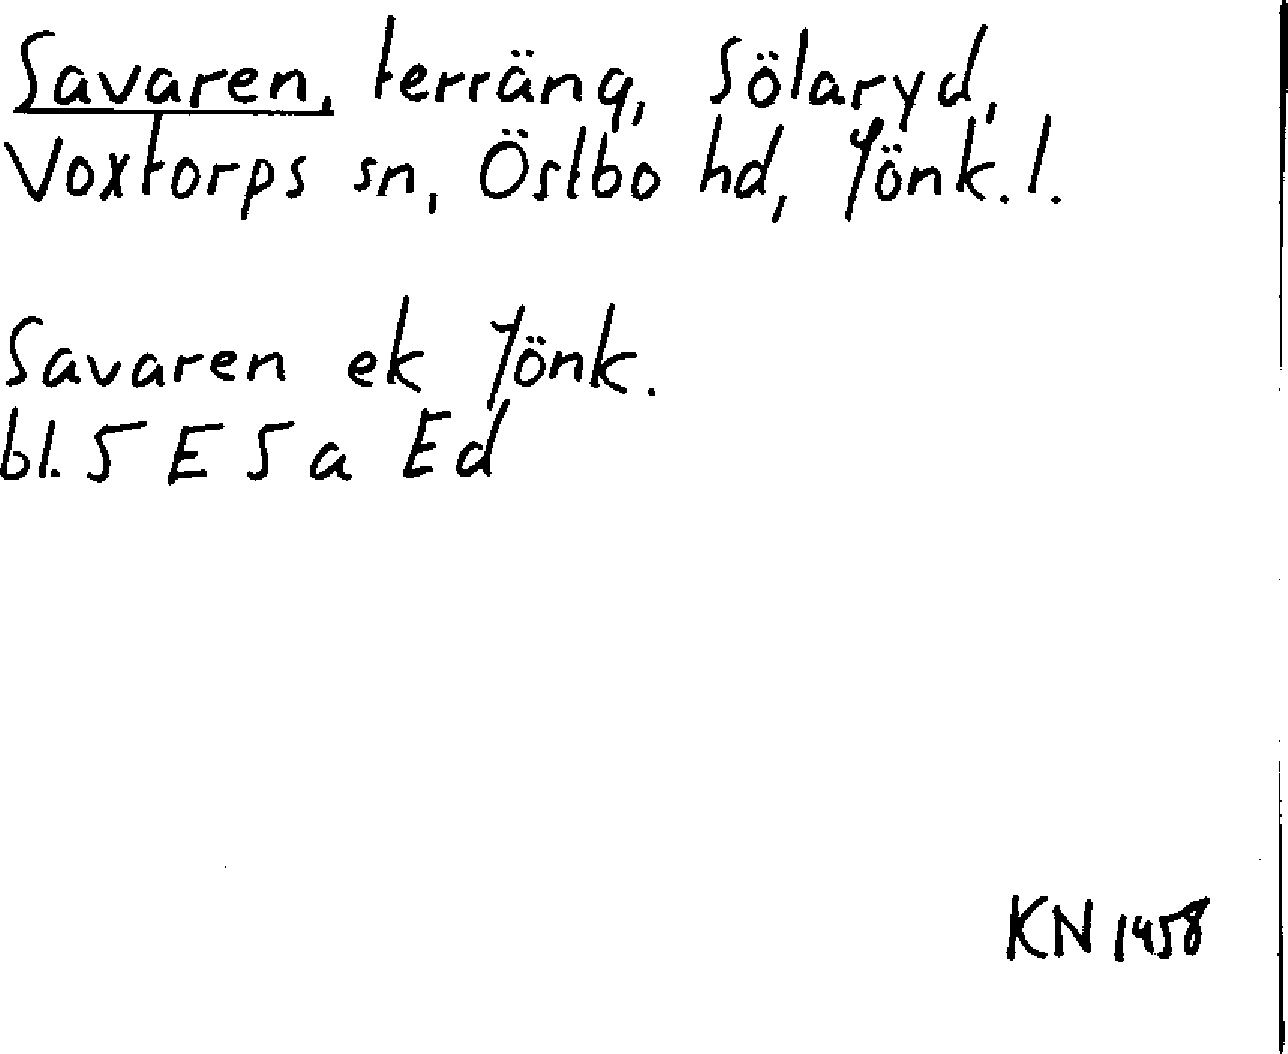 Savaren, terräng, Sölaryd,
Voxtorps sn, Östbo hd, Jönk. l.
Savaren ek Jönk.
bl. 5 E 5 a Ed
KN 1958